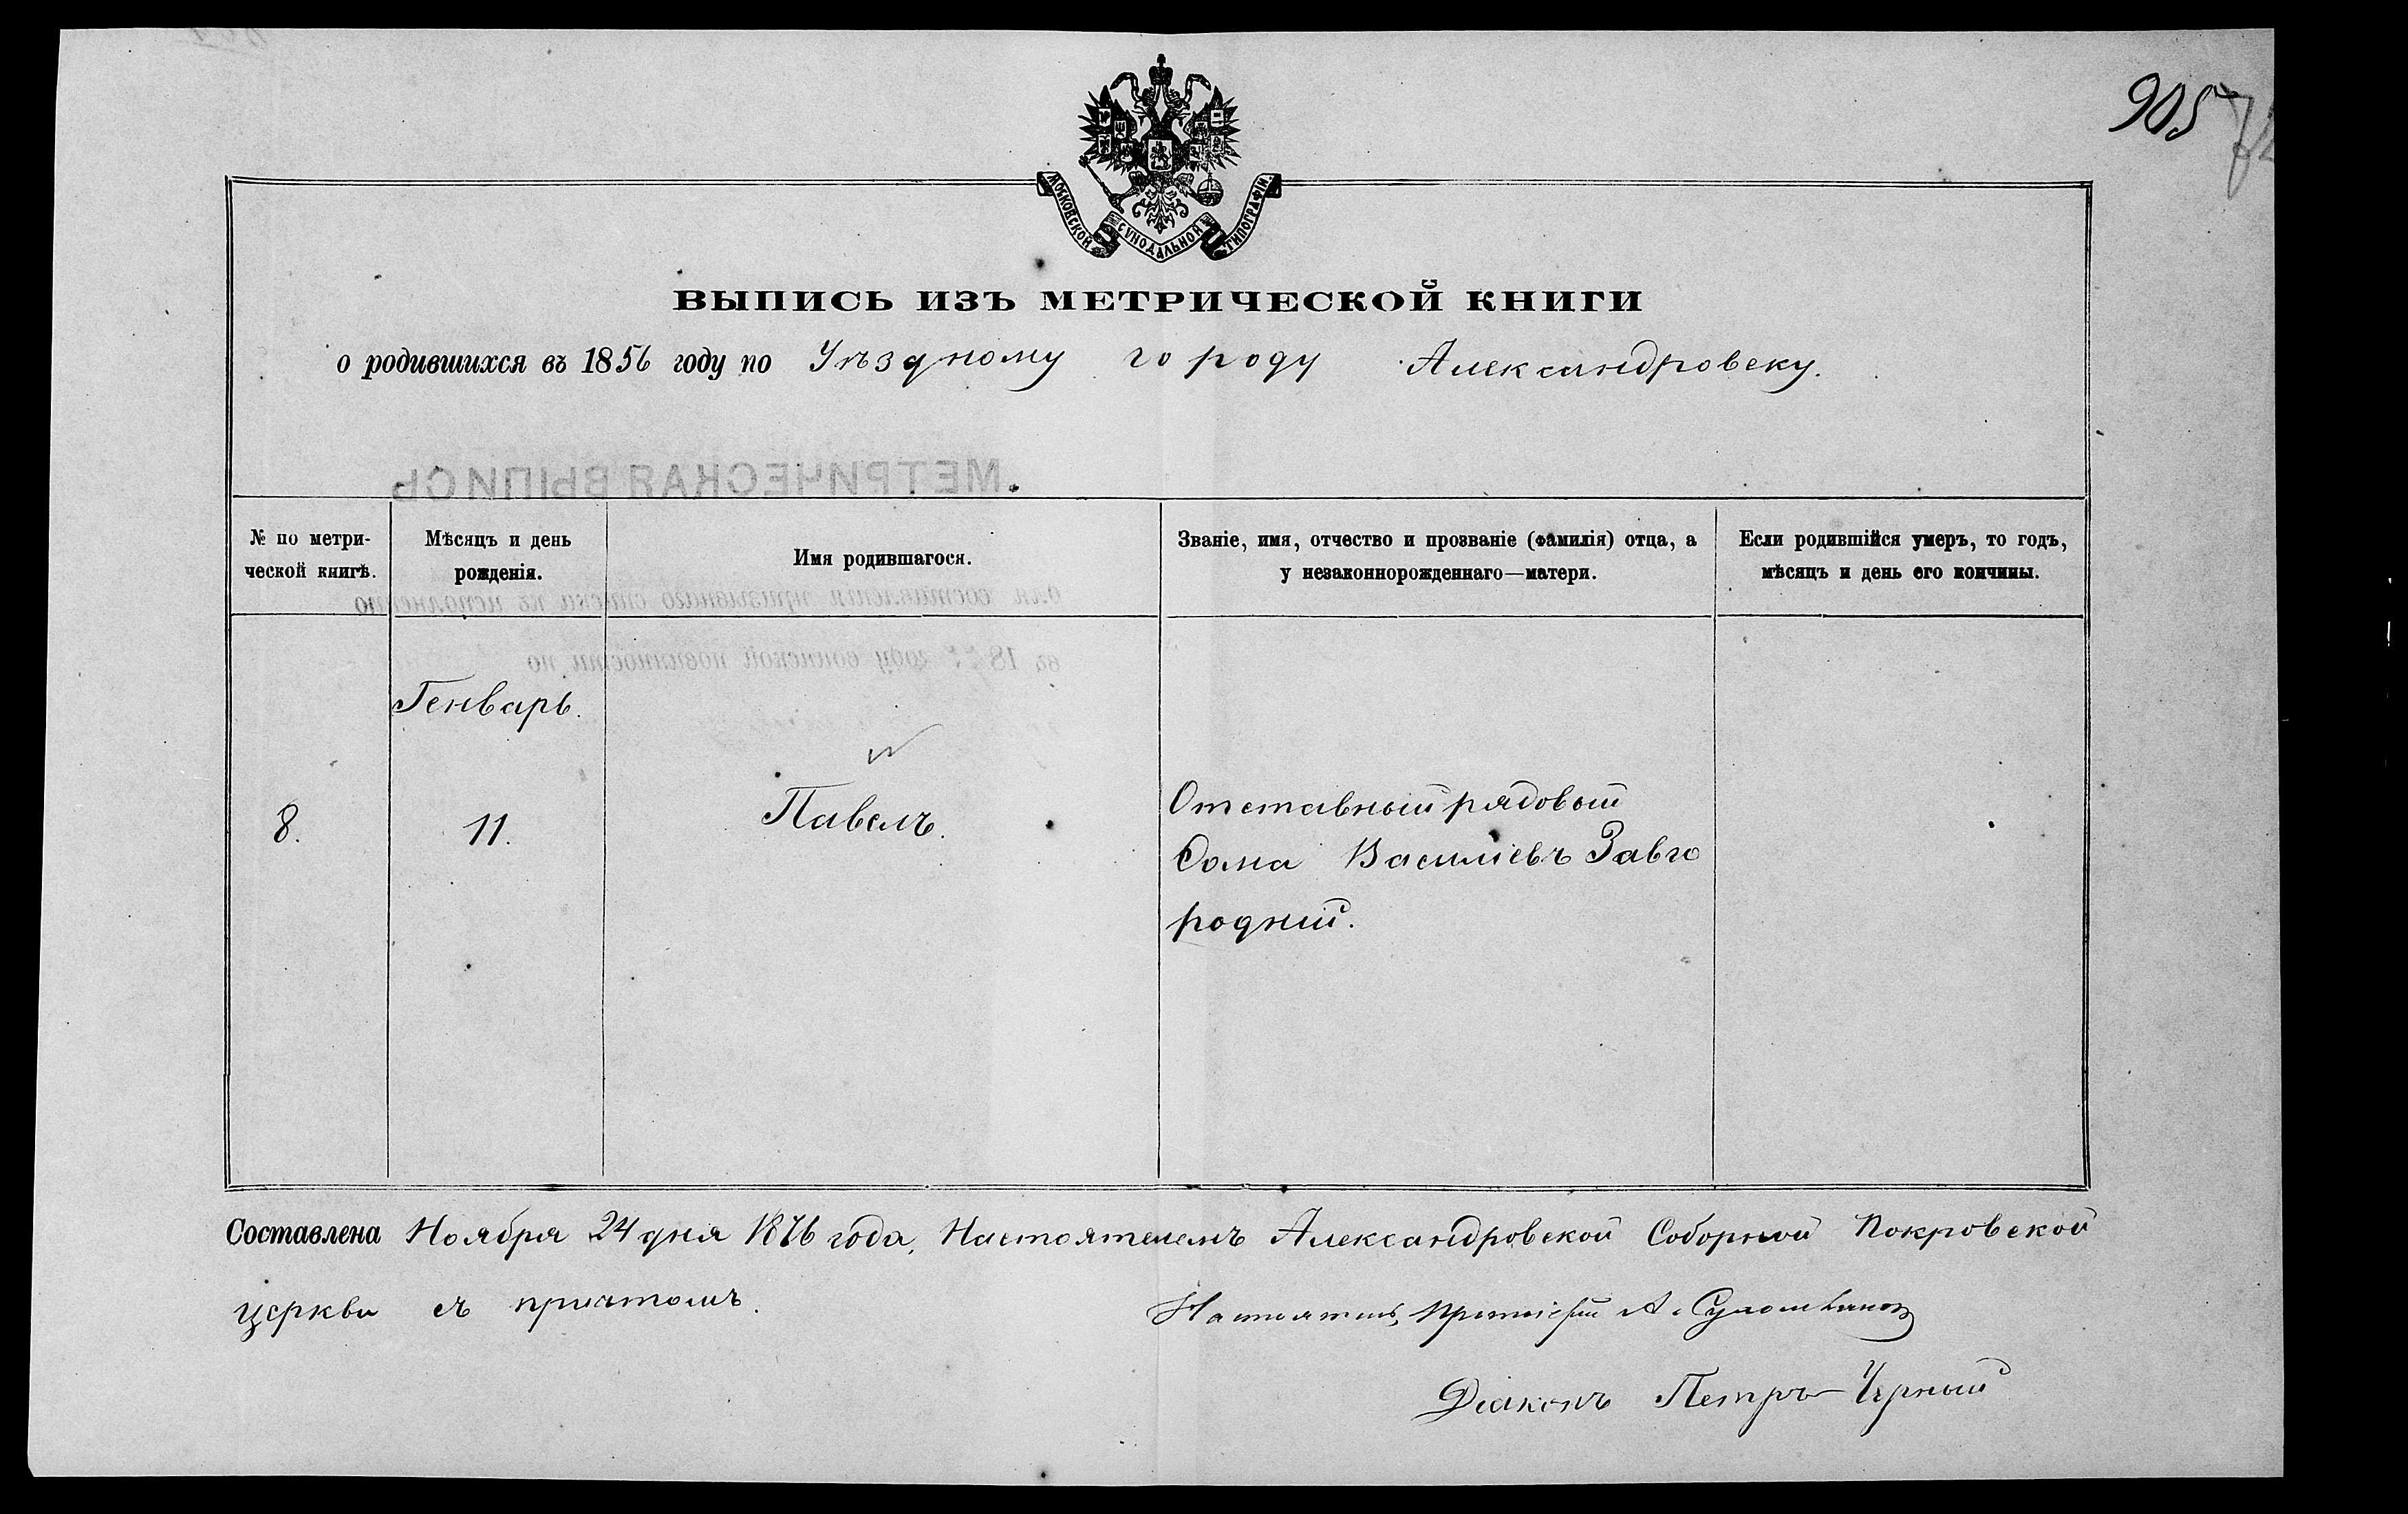 905
МОСКОВСКОЙ СУНОДАЛЬНОЙ ТИПОГРАФІИ.
ВЫПИСЬ ИЗЪ МЕТРИЧЕСКОЙ КНИГИ
о родившихся въ 1856 году по Уѣздному городу Александровску.
МЕТРИЧЕСКАЯ ВЫПИСЬ
№ по метри-
ческой книгѣ.
Мѣсяцъ и день
рожденія.
Имя родившагося.
Званіе, имя, отчество и прозваніе (фамилія) отца, а
у незаконнорожденнаго—матери.
Если родившійся умеръ, то годъ,
мѣсяцъ и день его кончины.
для составленія призывнаго списка къ исполненію
въ 18 году воинской повинности по
Генварь.
8.
11.
Павелъ.
Отставный рядовый
Ѳома Василіевъ Завго
родній.
Составлена Ноября 24 дня 1876 года, Настоятелемъ Александровской Соборной Покровской
церкви съ причтомъ.
Настоятель, Протоіерей А.
Діаконъ Петръ Черный